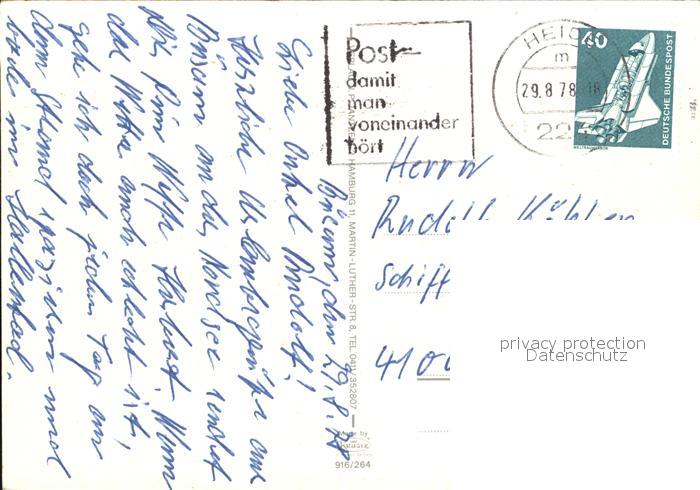 Büsum, den 29.8.78
Liebe Onkel Rudolf!
Herzliche Urlaubsgrüße aus
Büsum an der Nordsee sendet
Dir Dein Neffe Helmut. Wenn
das Wetter auch schlecht ist,
gehe ich doch jeden Tag am
dem Strand spazieren und
bade im Hallenbad.
Post-
damit
man
voneinander
hört
HEID
m
29.8.78-18
22
40
DEUTSCHE BUNDESPOST
Herrn
Rudolf Köhler
Schiff
4100
privacy protection
Datenschutz
HAMBURG 11, MARTIN-LUTHER-STR. 8, TEL. 0411/352807
Made by
916/264